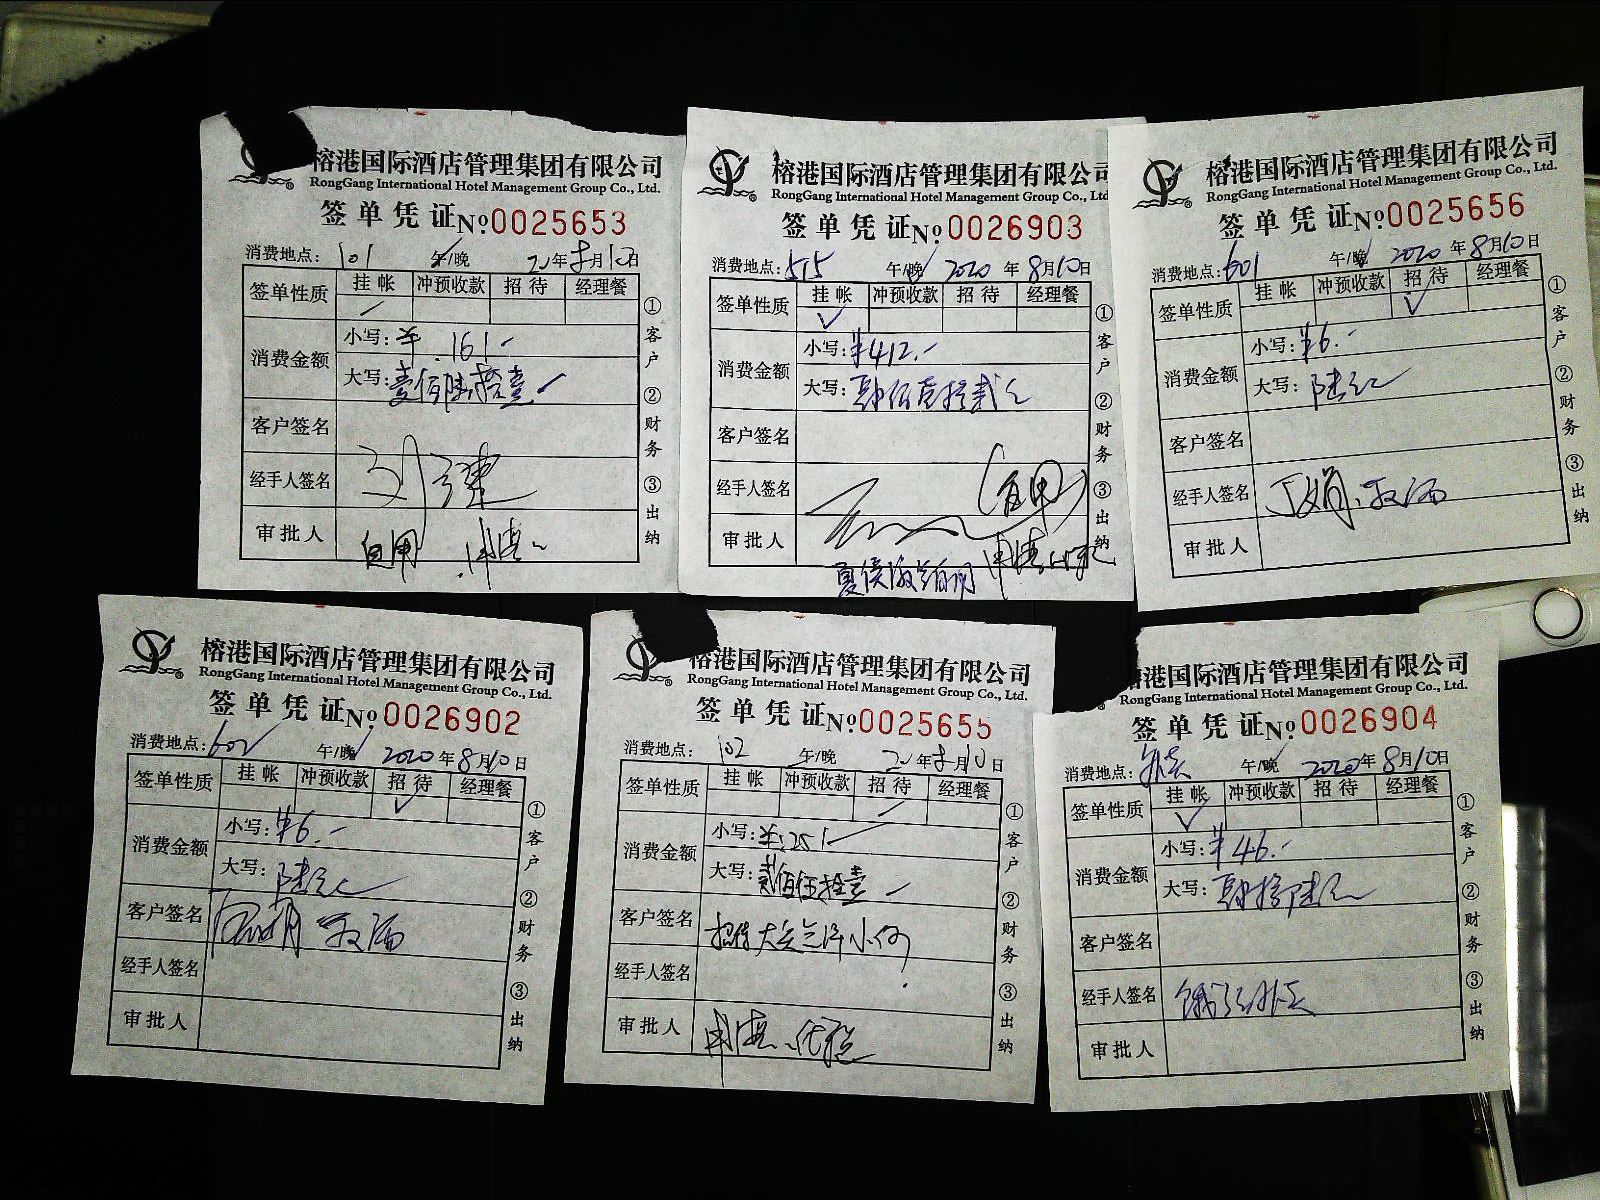 榕港国际酒店管理集团有限公司
RongGang International Hotel Management Group Co., Ltd.
签单凭证 No 0025653
消费地点: 101 午/晚 20年8月10日
签单性质 挂帐 冲预收款 招待 经理餐
消费金额 小写: ¥ 161-
大写: 壹佰陆拾壹
客户签名
经手人签名
审批人 自用
①客户 ②财务 ③出纳
榕港国际酒店管理集团有限公司
RongGang International Hotel Management Group Co., Ltd.
签单凭证 No 0026903
消费地点: 515 午/晚 2020年8月10日
签单性质 挂帐 冲预收款 招待 经理餐
消费金额 小写: ¥412.-
大写: 肆佰壹拾贰元
客户签名
经手人签名 (自用)
审批人
①客户 ②财务 ③出纳
榕港国际酒店管理集团有限公司
RongGang International Hotel Management Group Co., Ltd.
签单凭证 No 0025656
消费地点: 601 午/晚 2020年8月10日
签单性质 挂帐 冲预收款 招待 经理餐
消费金额 小写: ¥6.-
大写: 陆元
客户签名
经手人签名
审批人
①客户 ②财务 ③出纳
榕港国际酒店管理集团有限公司
RongGang International Hotel Management Group Co., Ltd.
签单凭证 No 0026902
消费地点: 602 午/晚 2020年8月10日
签单性质 挂帐 冲预收款 招待 经理餐
消费金额 小写: ¥6.-
大写: 陆元
客户签名
经手人签名
审批人
①客户 ②财务 ③出纳
榕港国际酒店管理集团有限公司
RongGang International Hotel Management Group Co., Ltd.
签单凭证 No 0025655
消费地点: 102 午/晚 20年8月10日
签单性质 挂帐 冲预收款 招待 经理餐
消费金额 小写: ¥:251
大写: 贰佰伍拾壹
客户签名 招待
经手人签名
审批人
①客户 ②财务 ③出纳
港国际酒店管理集团有限公司
RongGang International Hotel Management Group Co., Ltd.
签单凭证 No 0026904
消费地点: 外卖 午/晚 2020年8月10日
签单性质 挂帐 冲预收款 招待 经理餐
消费金额 小写: ¥46.-
大写: 肆拾陆元
客户签名
经手人签名 饿了么外卖
审批人
①客户 ②财务 ③出纳